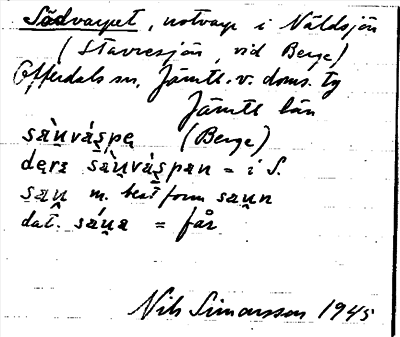 Södvarpet, notvarp i Näldsjön
(Stavresjön, vid Berge)
Offerdals sn, Jämtl. v. doms. tg
Jämtl län
sä̀u̯vás̨pe̢ (Berge)
de̢rɛ sä̀u̯vás̨pan = i S.
sau̯ m. best form sau̯n
dat. sáu̯a = får
Nils Simonsson 1945